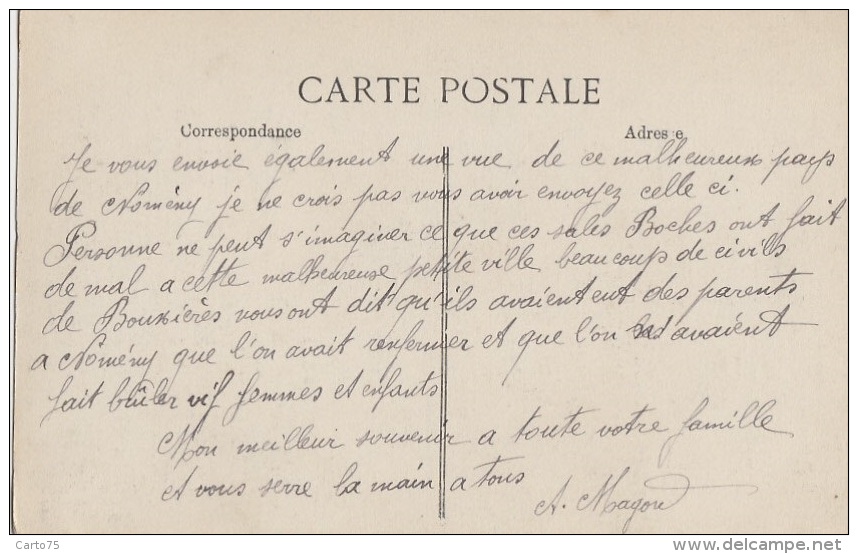 CARTE POSTALE
Correspondance
Adresse
Je vous envoie également une vue de ce malheureux pays
de Nomény je ne crois pas vous avoir envoyez celle ci.
Personne ne peut s'imaginer ce que ces sales Boches ont fait
de mal a cette malheureuse petite ville beaucoup de civils
de Bouxières vous ont dit qu'ils avaientent des parents
a Nomény que l'on avait renfermer et que l'on avaient
fait brûler vif femmes et enfants
Mon meilleur souvenir a toute votre famille
et vous serre la main a tous
A.
Carto75
www.delcampe.net